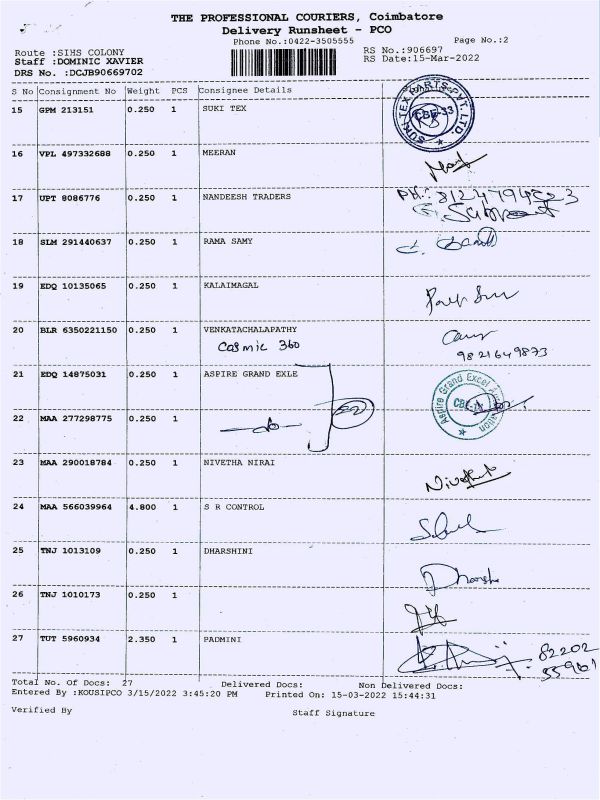 THE PROFESSIONAL COURIERS, Coimbatore
Delivery Runsheet - PCO
Phone No.:0422-3505555 Page No.:2
Route :SIHS COLONY RS No.:906697
Staff :DOMINIC XAVIER RS Date:15-Mar-2022
DRS No. :DCJB90669702
S No Consignment No Weight PCS Consignee Details
15 GPM 213151 0.250 1 SUKI TEX
SUKI TEX PARTS PVT. LTD.
CBE-33
16 VPL 497332688 0.250 1 MEERAN
17 UPT 8086776 0.250 1 NANDEESH TRADERS
18 SLM 291440637 0.250 1 RAMA SAMY
19 EDQ 10135065 0.250 1 KALAIMAGAL
20 BLR 6350221150 0.250 1 VENKATACHALAPATHY
Cosmic 360
9821649873
21 EDQ 14875031 0.250 1 ASPIRE GRAND EXLE
Aspire Grand Excel
22 MAA 277298775 0.250 1
23 MAA 290018784 0.250 1 NIVETHA NIRAI
24 MAA 566039964 4.800 1 S R CONTROL
25 TNJ 1013109 0.250 1 DHARSHINI
26 TNJ 1010173 0.250 1
27 TUT 5960934 2.350 1 PADMINI
82202
Total No. Of Docs: 27 Delivered Docs: Non Delivered Docs:
Entered By :KOUSIPCO 3/15/2022 3:45:20 PM Printed On: 15-03-2022 15:44:31
Verified By Staff Signature